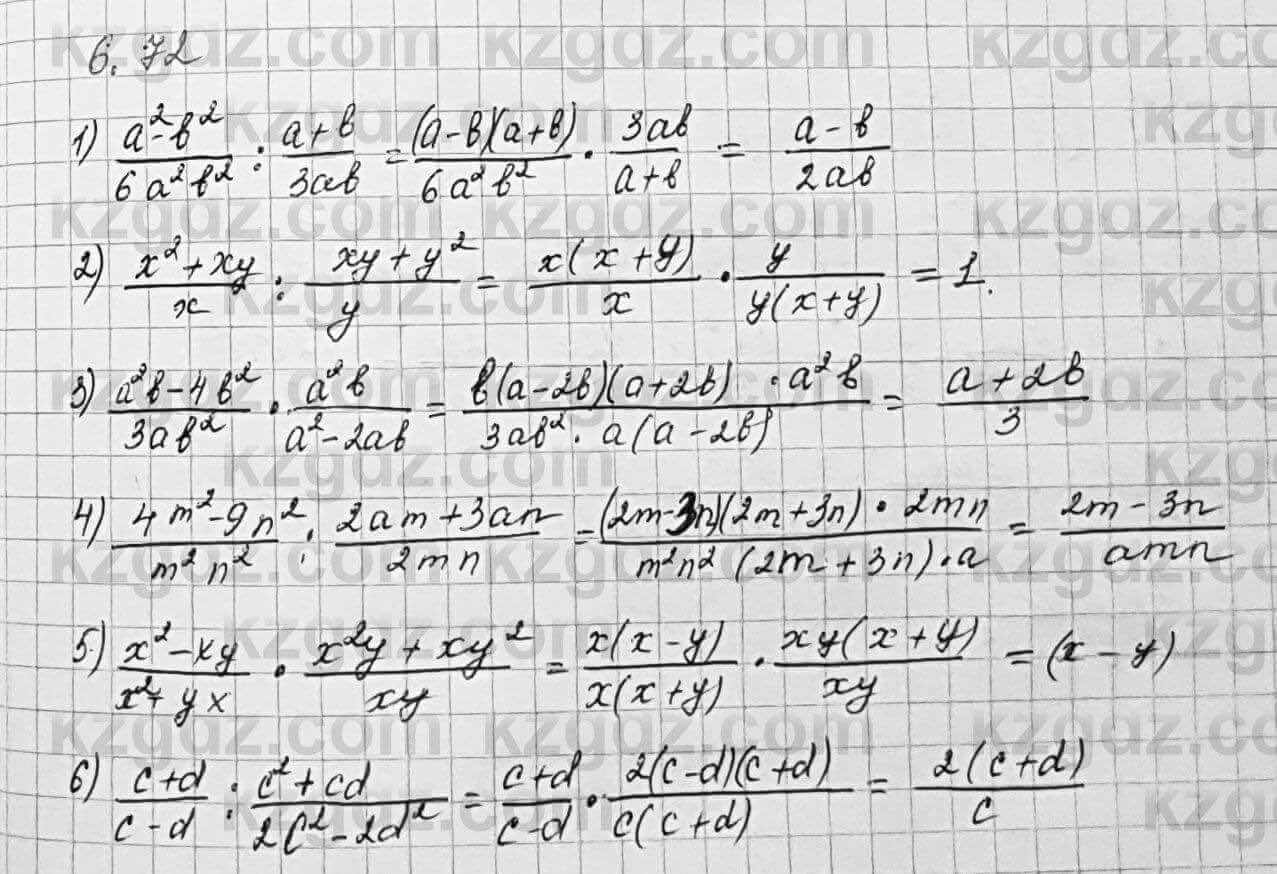 6.72
1) (a²-b²)/(6a²b²) : (a+b)/(3ab) = ((a-b)(a+b))/(6a²b²) · (3ab)/(a+b) = (a-b)/(2ab)
2) (x²+xy)/x : (xy+y²)/y = (x(x+y))/x · y/(y(x+y)) = 1.
3) (a²b-4b²)/(3ab²) · (a²b)/(a²-2ab) = (b(a-2b)(a+2b) · a²b)/(3ab² · a(a-2b)) = (a+2b)/3
4) (4m²-9n²)/(m²n²) : (2am+3an)/(2mn) = ((2m-3n)(2m+3n) · 2mn)/(m²n²(2m+3n)·a) = (2m-3n)/(amn)
5) (x²-xy)/(x²+yx) · (x²y+xy²)/(xy) = (x(x-y))/(x(x+y)) · (xy(x+y))/(xy) = (x-y)
6) (c+d)/(c-d) : (c²+cd)/(2c²-2d²) = (c+d)/(c-d) · (2(c-d)(c+d))/(c(c+d)) = (2(c+d))/c
kzgdz.com